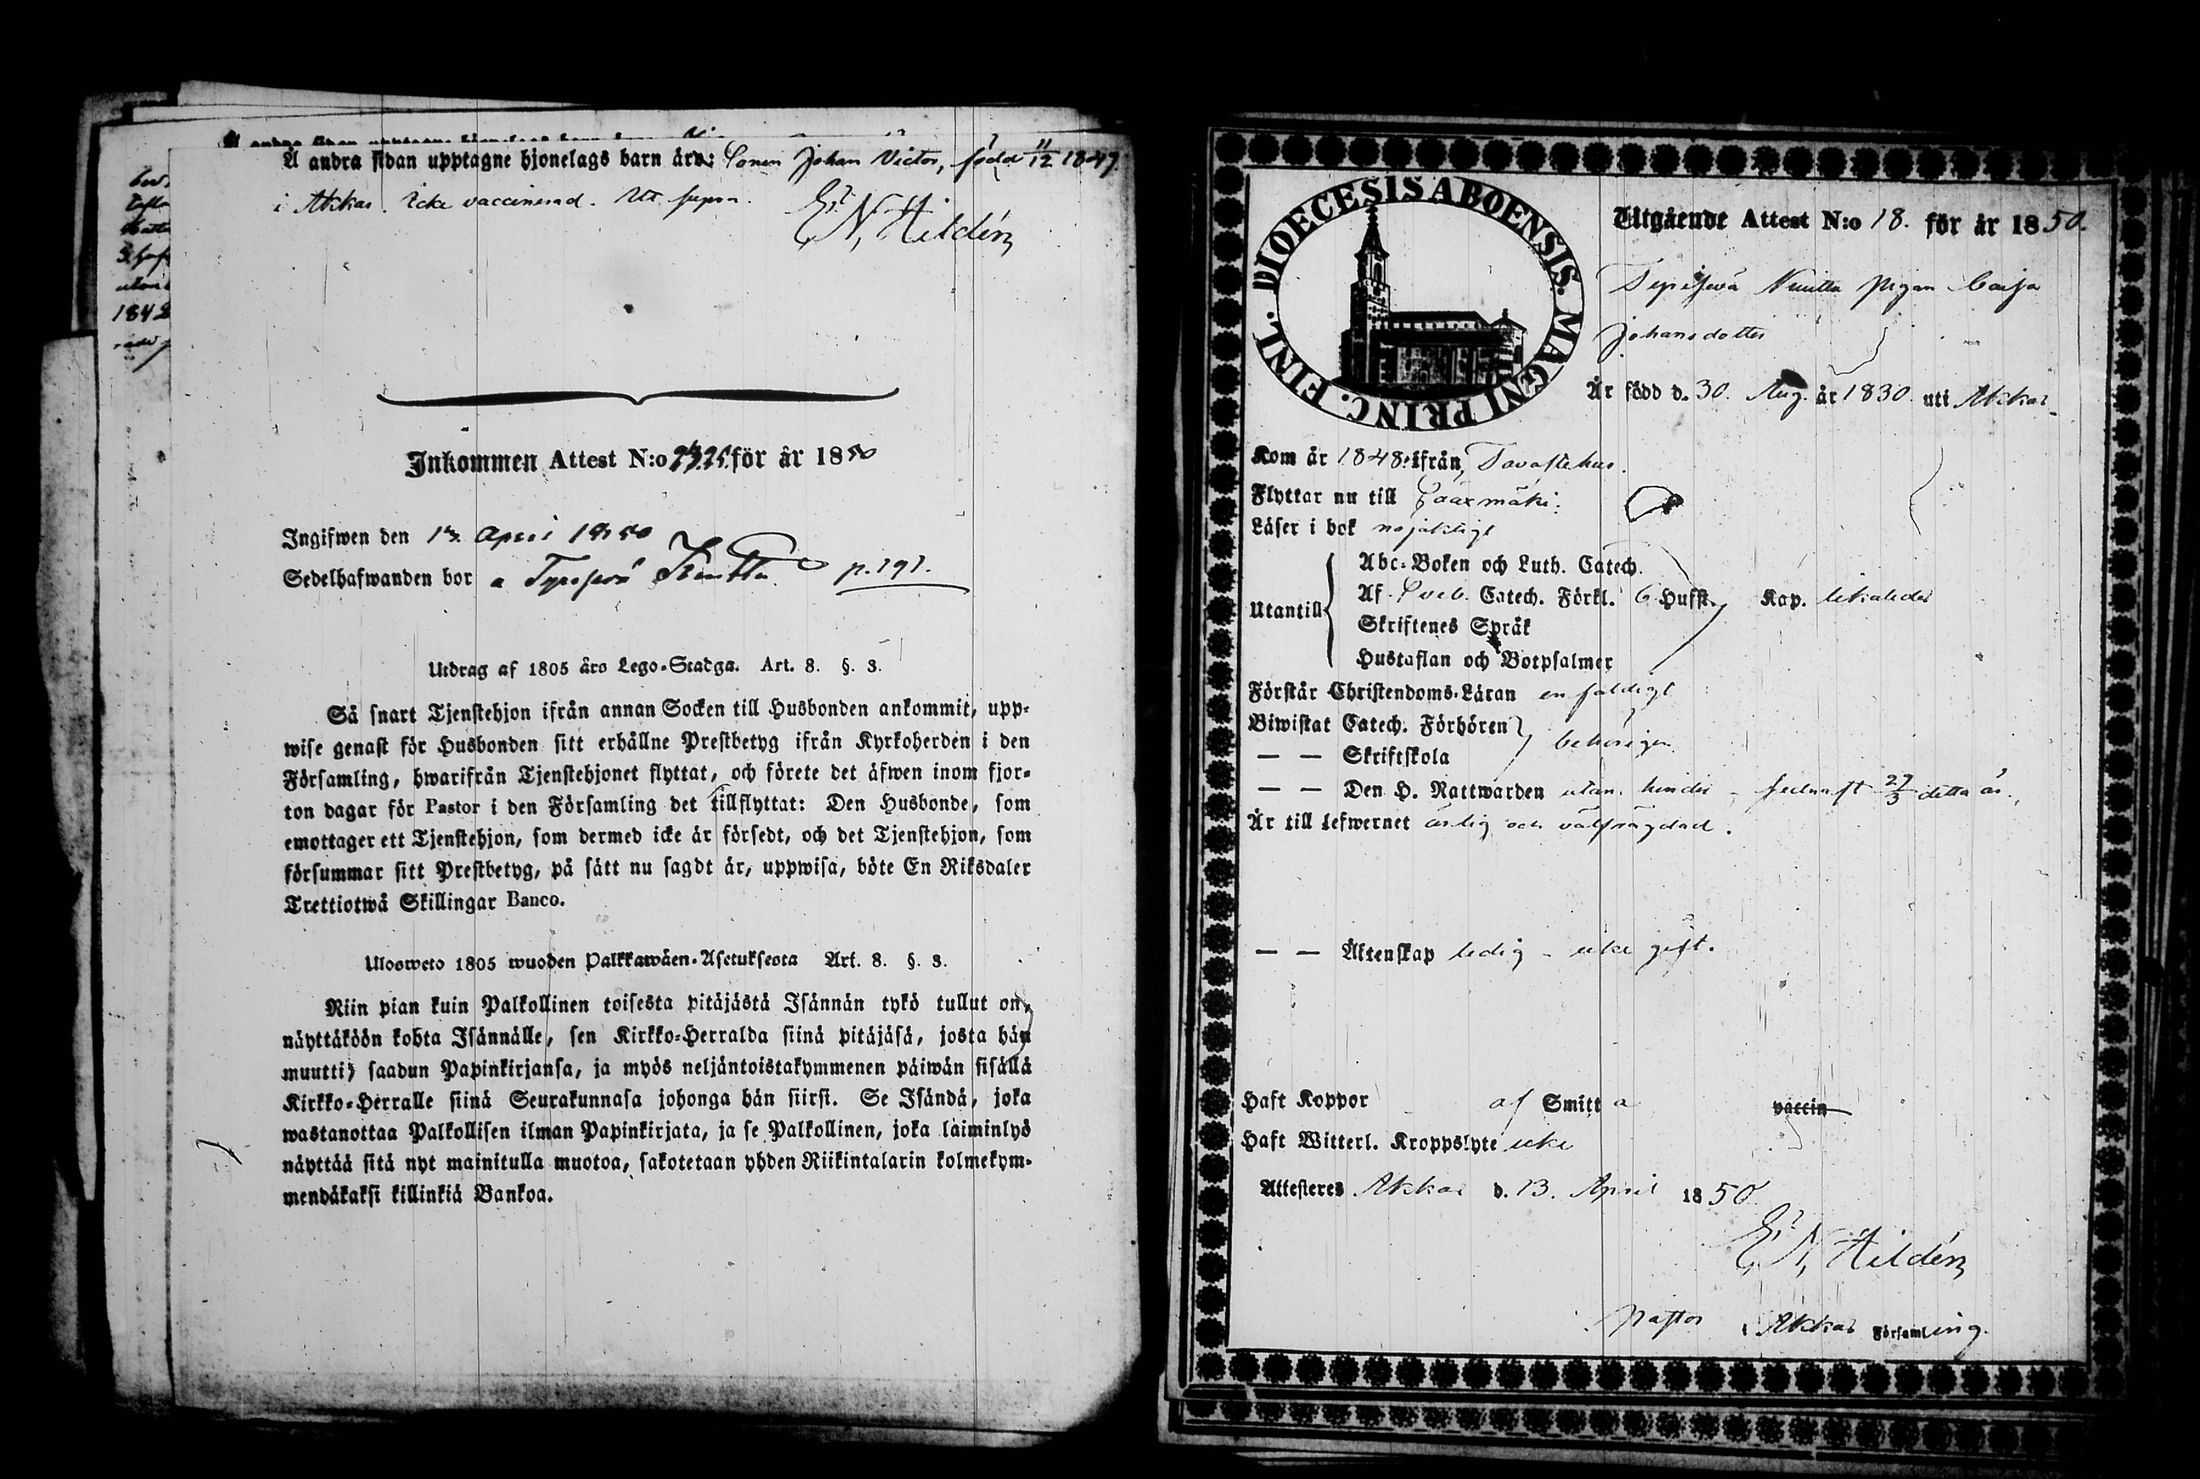 Å andra sidan upptagne hjonelags barn äro: Sonen Johan Victor, född 11/12 1849.
i Akkas. Icke vaccinerad. Ut supra.
E. N. Hildén
Inkommen Attest N:o för år 1850
Ingifwen den April 1850
Sedelhafwanden bor p. 191.
Utdrag af 1805 års Lego-Stadga. Art. 8. §. 3.
Så snart Tjenstehjon ifrån annan Socken till Husbonden ankommit, upp-
wise genast för Husbonden sitt erhållne Prestbetyg ifrån Kyrkoherden i den
Församling, hwarifrån Tjenstehjonet flyttat, och förete det äfwen inom fjor-
ton dagar för Pastor i den Församling det tillflyttat: Den Husbonde, som
emottager ett Tjenstehjon, som dermed icke är försedt, och det Tjenstehjon, som
försummar sitt Prestbetyg, på sätt nu sagdt är, uppwisa, böte En Riksdaler
Trettiotwå Skillingar Banco.
Ulosweto 1805 wuoden Palkkawäen-Asetuksesta Art. 8. §. 3.
Niin pian kuin Palkollinen toisesta pitäjästä Isännän tykö tullut on,
näyttäköön kohta Isännälle, sen Kirkko-Herralda siinä pitäjäsä, josta hän
muutti, saadun Papinkirjansa, ja myös neljäntoistakymmenen päiwän sisällä
Kirkko-Herralle siinä Seurakunnasa johonga hän siirsi. Se Isändä, joka
wastanottaa Palkollisen ilman Papinkirjata, ja se Palkollinen, joka laiminlyö
näyttää sitä nyt mainitulla muotoa, sakotetaan yhden Riikintalarin kolmekym-
mendäkaksi killinkiä Bankoa.
DIOECESIS ABOENSIS. MAGNI PRINC. FINL.
Utgående Attest N:o 18. för år 1850.
Pigan Caisa
Johansdotter
Är född d. 30. Aug. år 1830. uti Akkas.
Kom år 1848. ifrån Tavastehus.
Flyttar nu till Sääxmäki.
Läser i bok nöjaktigt
Utantill
Abc-Boken och Luth. Catech.
Af Sveb. Catech. Förkl. 6 Hufst. Kap. likaledes
Skriftenes Språk
Hustaflan och Botpsalmer
Förstår Christendoms-Läran enfaldigt
Biwistat Catech. Förhören
— — Skriftskola behörigen
— — Den H. Nattwarden utan hinder - sednast 27/3 detta år.,
Är till lefwernet ärlig och välfrägdad.
— — Äktenskap ledig - icke gift.
Haft Koppor af Smitta vaccin
Haft Witterl. Kroppslyte icke
Attesteres Akkas d. 13. April 1850
E. N. Hildén
Pastor i Akkas Församling.